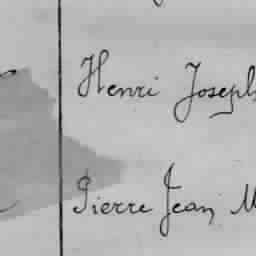 Henri Joseph
Pierre Jean M